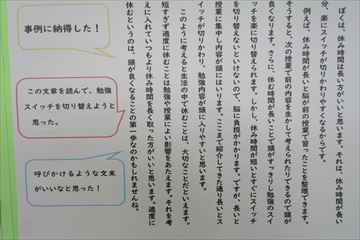 ぼくは、休み時間は長い方がいいと思います。それは、休み時間が長い
分、楽にスイッチが切りかわりやすくなるからです。
例えば、休み時間が長いと脳が前の授業で習ったことを整理できます。
そうすると、次の授業で前の内容を生かして考えられたりできるので頭が
良くなります。さらに、休む時間が長いことで頭がすっきりし勉強のスイ
ッチを楽に切り替えられます。しかし、休み時間が短いとすぐにスイッチ
を切り替えないといけないので、脳に負担がかかります。ですが、長いと
授業に集中し内容が頭にはいります。ここまで紹介してきた通り長いとス
イッチが切りかわり、勉強内容が頭に入りやすいと思います。
このように考えると生活の中で休むことは、大切なことだといえます。
短すぎず適度に休むことは勉強や授業によい影響をあたえます。それを考
えに入れていつもより休み時間を長く取った方がいいと思います。適度に
休むというのは、頭が良くなることの第一歩なのかもしれませんね。
事例に納得した！
この文章を読んで、勉強
スイッチを切り替えようと
思った。
呼びかけるような文末
がいいなと思った！